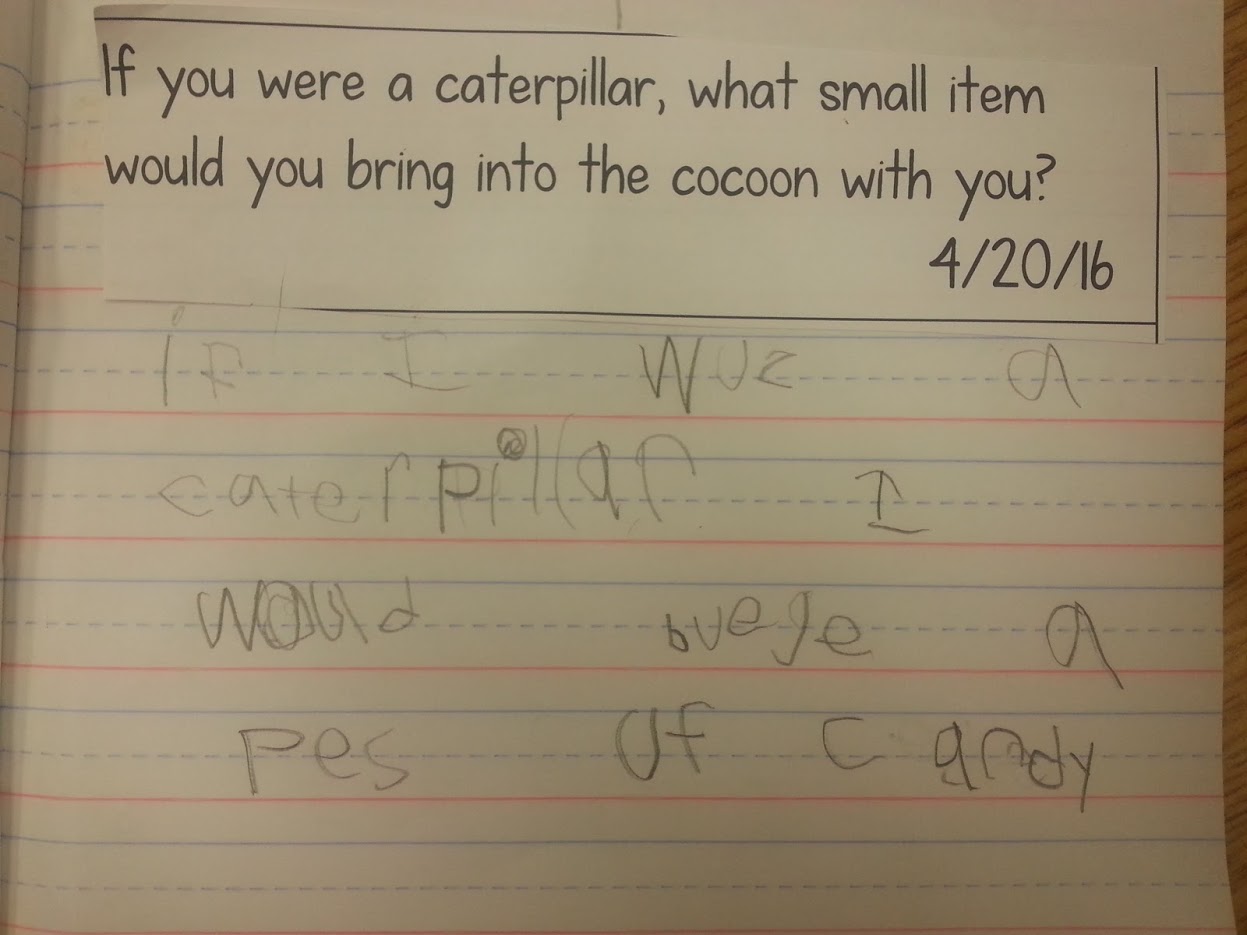 If you were a caterpillar, what small item
would you bring into the cocoon with you?
4/20/16
if I wuz a
caterpillar I
would buege a
pes uf candy